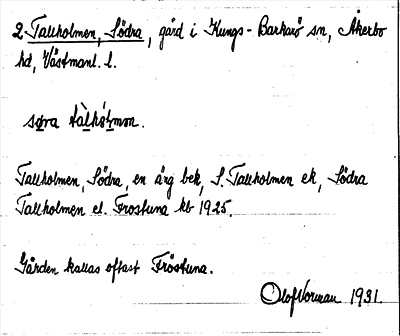 2. Tallholmen, Södra, gård i Kungs-Barkarö sn, Åkerbo
hd, Västmanl. l.
Tallholmen, Södra, en äng bek, S. Tallholmen ek, Södra
Tallholmen el. Fröstuna kb 1925.
Gården kallas oftast Fröstuna.
Olof Norman 1931.